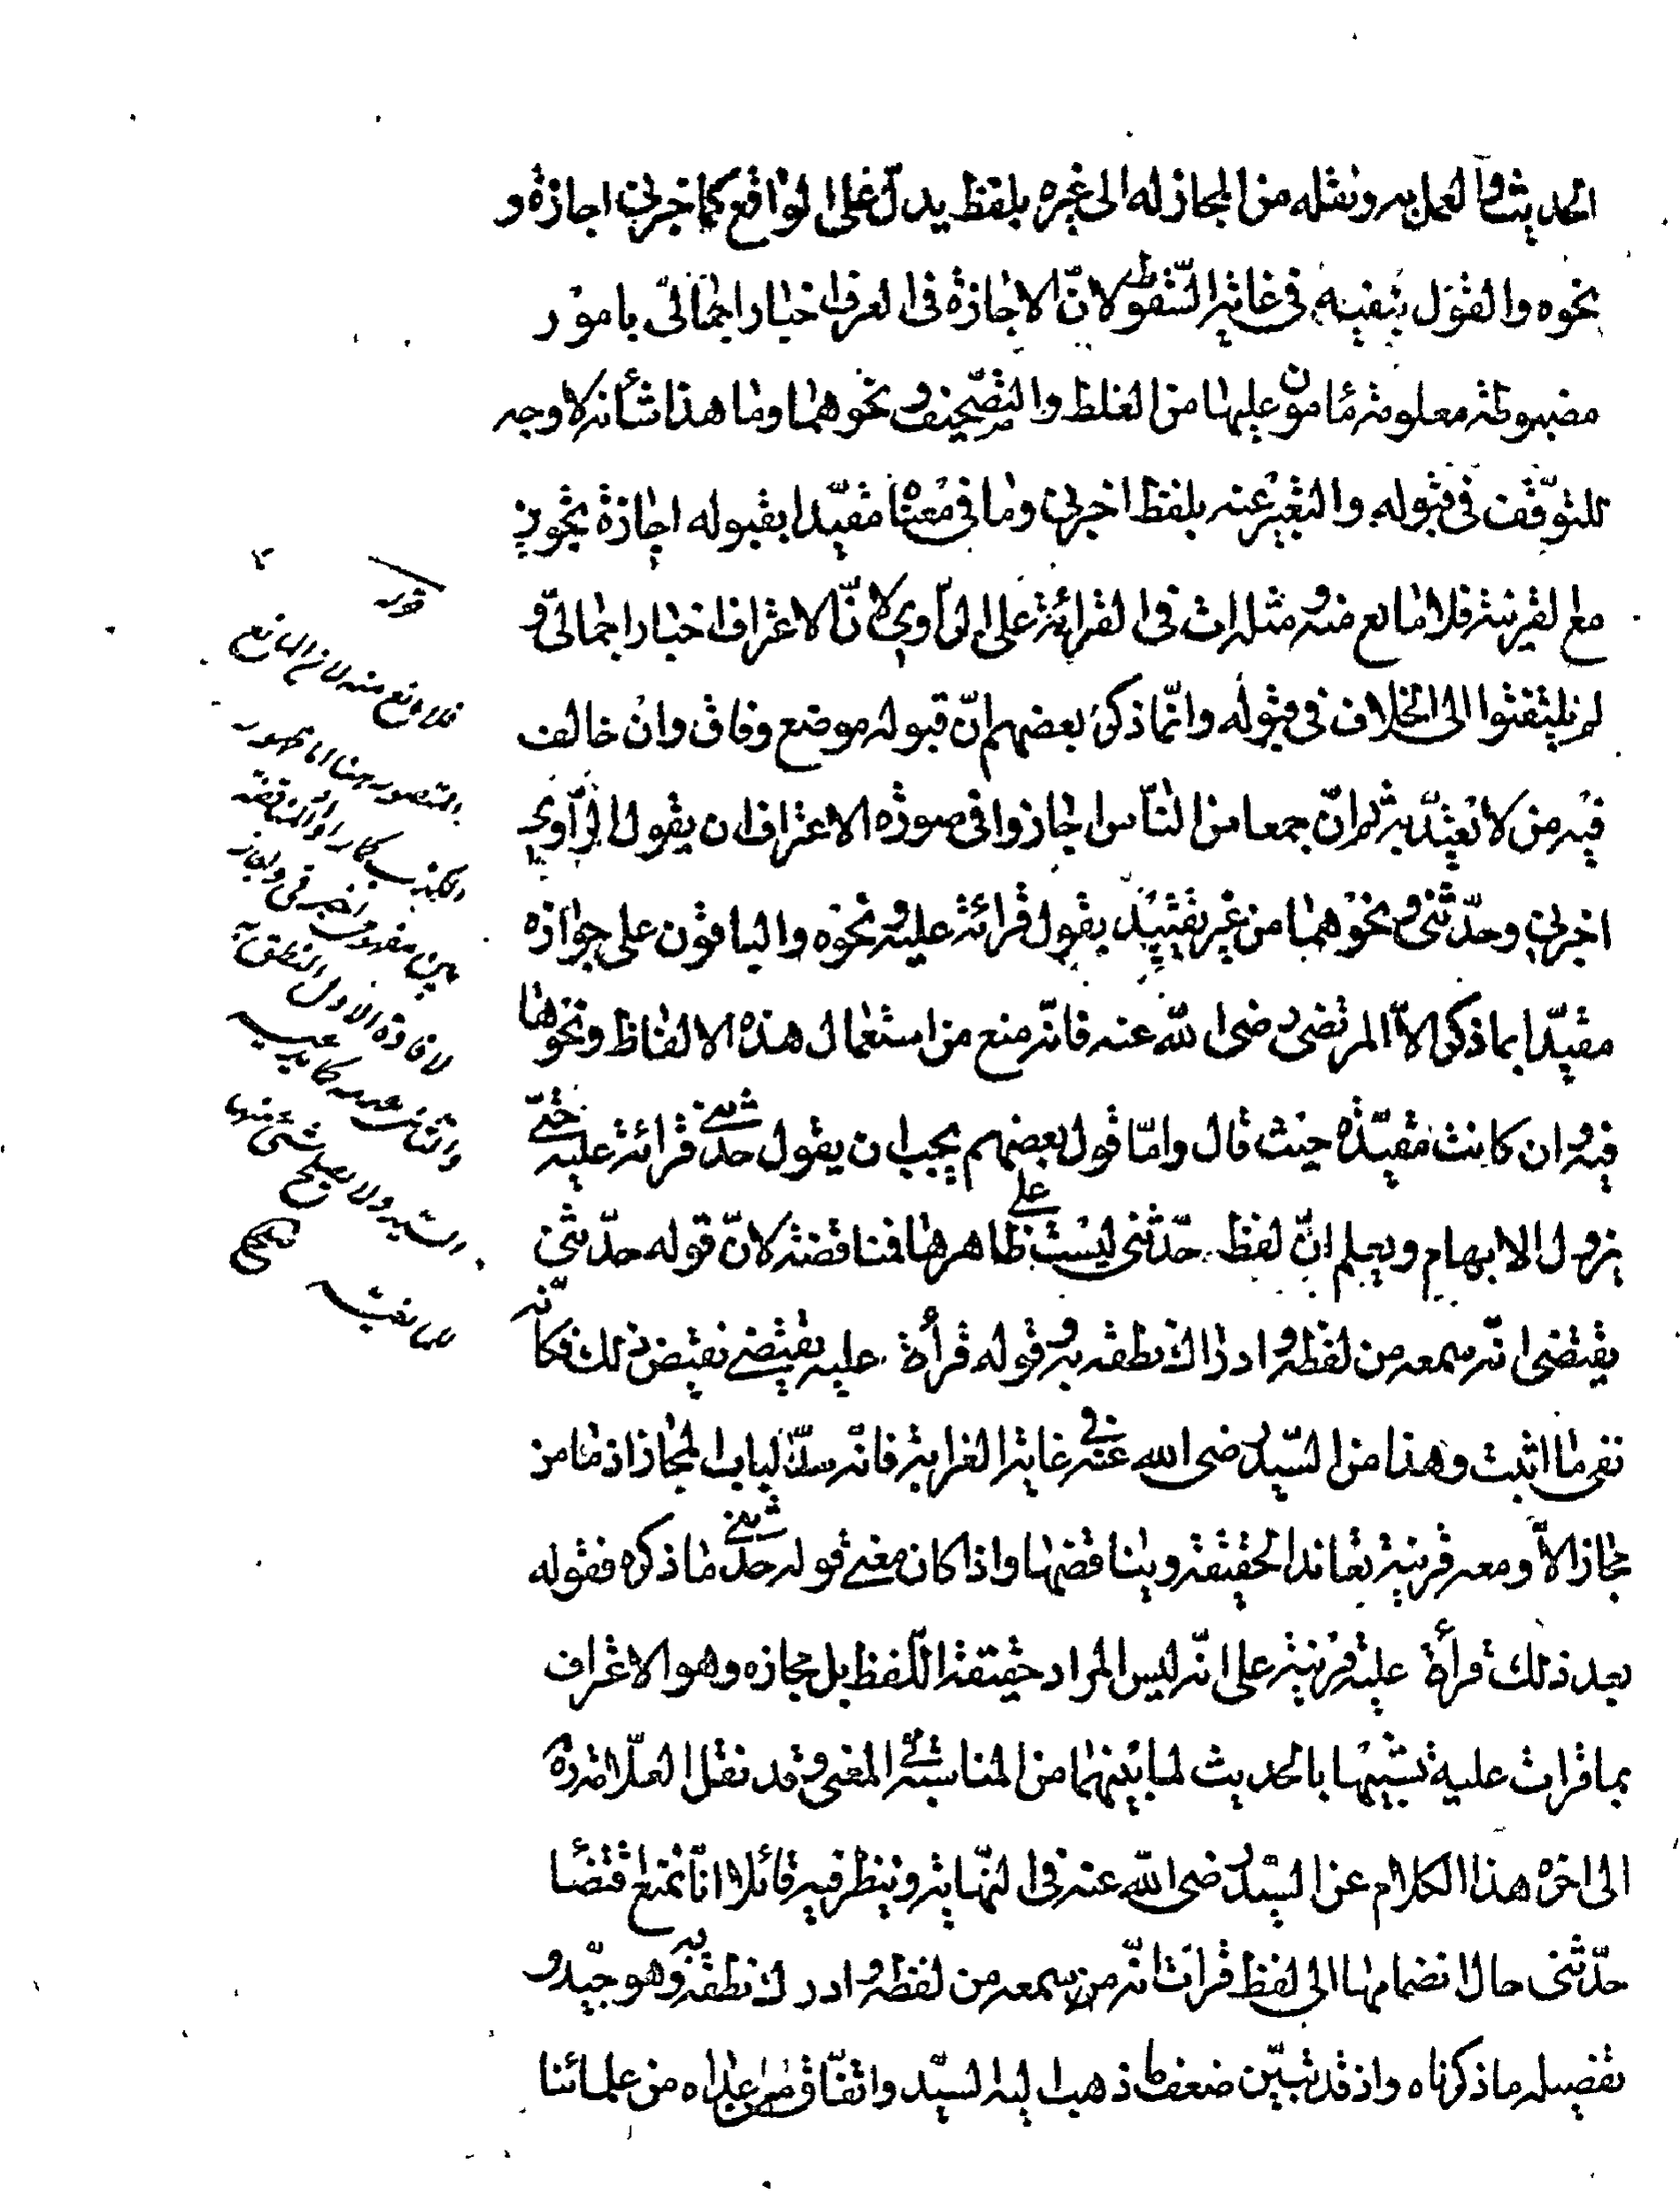 الحديث والعمل به ونقله من المجاز له الى غيره بلفظ يدل على الواقع كاخبرني اجازة و
نحوه والقول بنفيه في غاية السّقوط لانّ الاجازة في العرف اخبار اجمالىّ بامور
مضبوطة معلومة مأمون عليها من الغلط والتصّحيف ونحوهما وما هذا شأنه لا وجه
للتوقّف في قبوله والتعبير عنه بلفظ اخبرني وما في معناه مقيّدا بقبوله اجازة تجوز
مع القرينة فلا مانع منه ومثله ات في القرائة على الرّاوي لانّ الاعتراف اخبار اجمالىّ و
لم يلتفتوا الى الخلاف في قبوله وانّما ذكر بعضهم انّ قبوله موضع وفاق وان خالف
فيه من لا يعتدّ به ثم انّ جمعا من النّاس اجازوا في صورة الاعتراف ان يقول الرّاوي
اخبرني وحدّثني ونحوهما من غير تقييد بقول قرائة عليه ونحوه والباقون على جوازه
مقيّدا بما ذكر الاّ المرتضى رضى الله عنه فانّه منع من استعمال هذه الالفاظ ونحوها
فيه وان كانت مقيّدة حيث قال وامّا قول بعضهم يجب ان يقول حدّثني قرائة عليه حتّى
يزول الابهام ويعلم انّ لفظ حدّثني ليست على ظاهرها فمناقضة لانّ قوله حدّثني
يقتضى انّه سمعه من لفظه وادراك نطقه به وقوله قرأة عليه يقتضى نقيض ذلك فكأنّه
نفى ما اثبت وهذا من السّيّد رضى الله عنه في غاية الغرابة فانّه سدّ لباب المجاز اذ ما من
مجاز الاّ ومعه قرينة تعاند الحقيقة ويناقضها واذا كان معنى قوله حدّثني ما ذكره فقوله
بعد ذلك قرأة عليه قرينة على انّه ليس المراد حقيقة اللّفظ بل مجازه وهو الاعتراف
بما قرات عليه تشبيها بالحديث لما بينهما من المناسبة في المعنى وقد نقل العلاّمة ره
الى اخره هذا الكلام عن السّيّد رضى الله عنه في النّهاية وتنظر فيه قائلا انّا نمنع اقتضا
حدّثنى حال انضمامها الى لفظ قرات انّه من سمعه من لفظه وادرك نطقه به وهو جيّد و
تفصيله ما ذكرناه واذ قد تبيّن ضعف ما ذهب اليه السّيّد واتفّاق من عداه من علمائنا
قوله
فلا مانع منه لان المانع